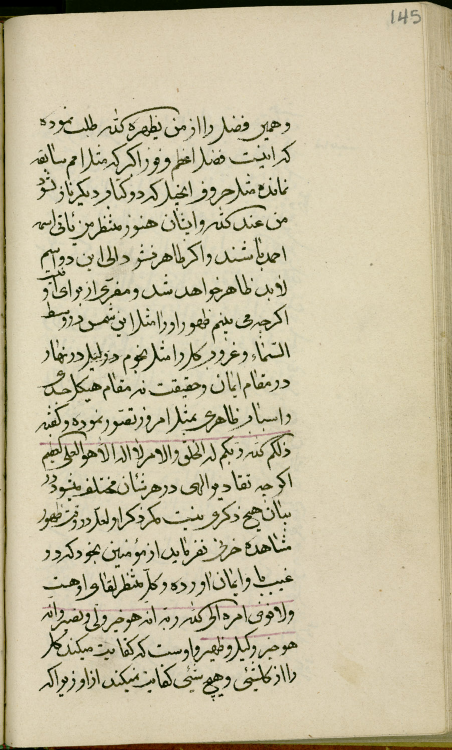 145
و همین فضل را از من یظهره الله طلب نموده
که اینست فضل اعظم و فوز اکبر که مثل امم سابقه
نمانده مثل حروف انجیل که دو کتاب دیگر نازل شود
من عند الله و ایشان هنوز منتظر من یاتی اسمه
احمد باشند و اگر ظاهر نشود الی این دو اسم
لابد ظاهر خواهد شد و مفری از برای او نیست
اگرچه می بینم ظهور او را مثل این شمس در وسط
السماء و غروب کل را مثل نجوم در لیل در نهار
در مقام ایمان و حقیقت نه مقام هیکل جسدی
و اسباب ظاهری بمثل امروز تصور نموده و گفته
ذلکم الله ربکم له الخلق و الامر لا اله الا هو العلی العظیم
اگرچه تقادیر الهی در هر شان مختلف میشود در
بیان هیچ ذکری نیست مگر ذکر او لعل در وقت ظهور
مشاهده حزنی نفرماید از مؤمنین بخود که در
غیب باو ایمان آورده و کل منتظر لقای او هست
و لافوض امره الی الله ربه انه هو خیر ولی و نصیر و انه
هو خیر وکیل و ظهیر و اوست که کفایت میکند کل
را از کلشیئی و هیچ شیئی کفایت نمیکند از او زیرا که